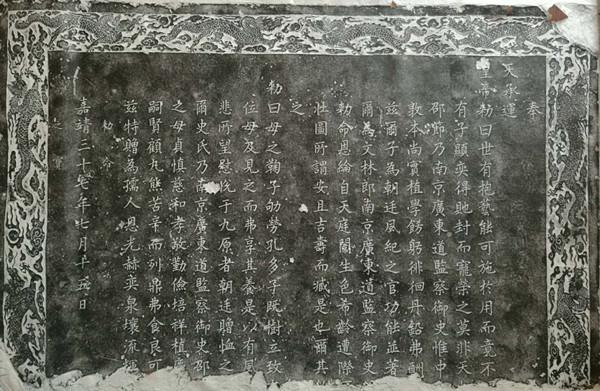 奉
天承運
皇帝勑曰世有抱藝能可施於用而竟不
有子顯奕得貤封而寵榮之莫非天
邵節乃南京廣東道監察御史惟中
敦本尚實植學錺躬徘徊丹鉛弗酬
茲爾子為朝廷風紀之官功能茲著
爾為文林郎南京廣東道監察御史
勑命恩綸自天庭闈生色希齡遭際
壯圖所謂安且吉壽而臧是也爾其
之
勑曰母之鞠子劬勞孔多子既樹立故
位母及見之而弗享其養是以有同
悲所望慰于九原者朝廷贈恤之
爾史氏乃南京廣東道監察御史邵
之母貞慎慈和孝敬勤儉培祥植
嗣賢顧九熊苦辛而列鼎弗食良可
茲特贈為孺人恩光赫奕泉壤流
勑命
嘉靖三十年七月十五日
之寶